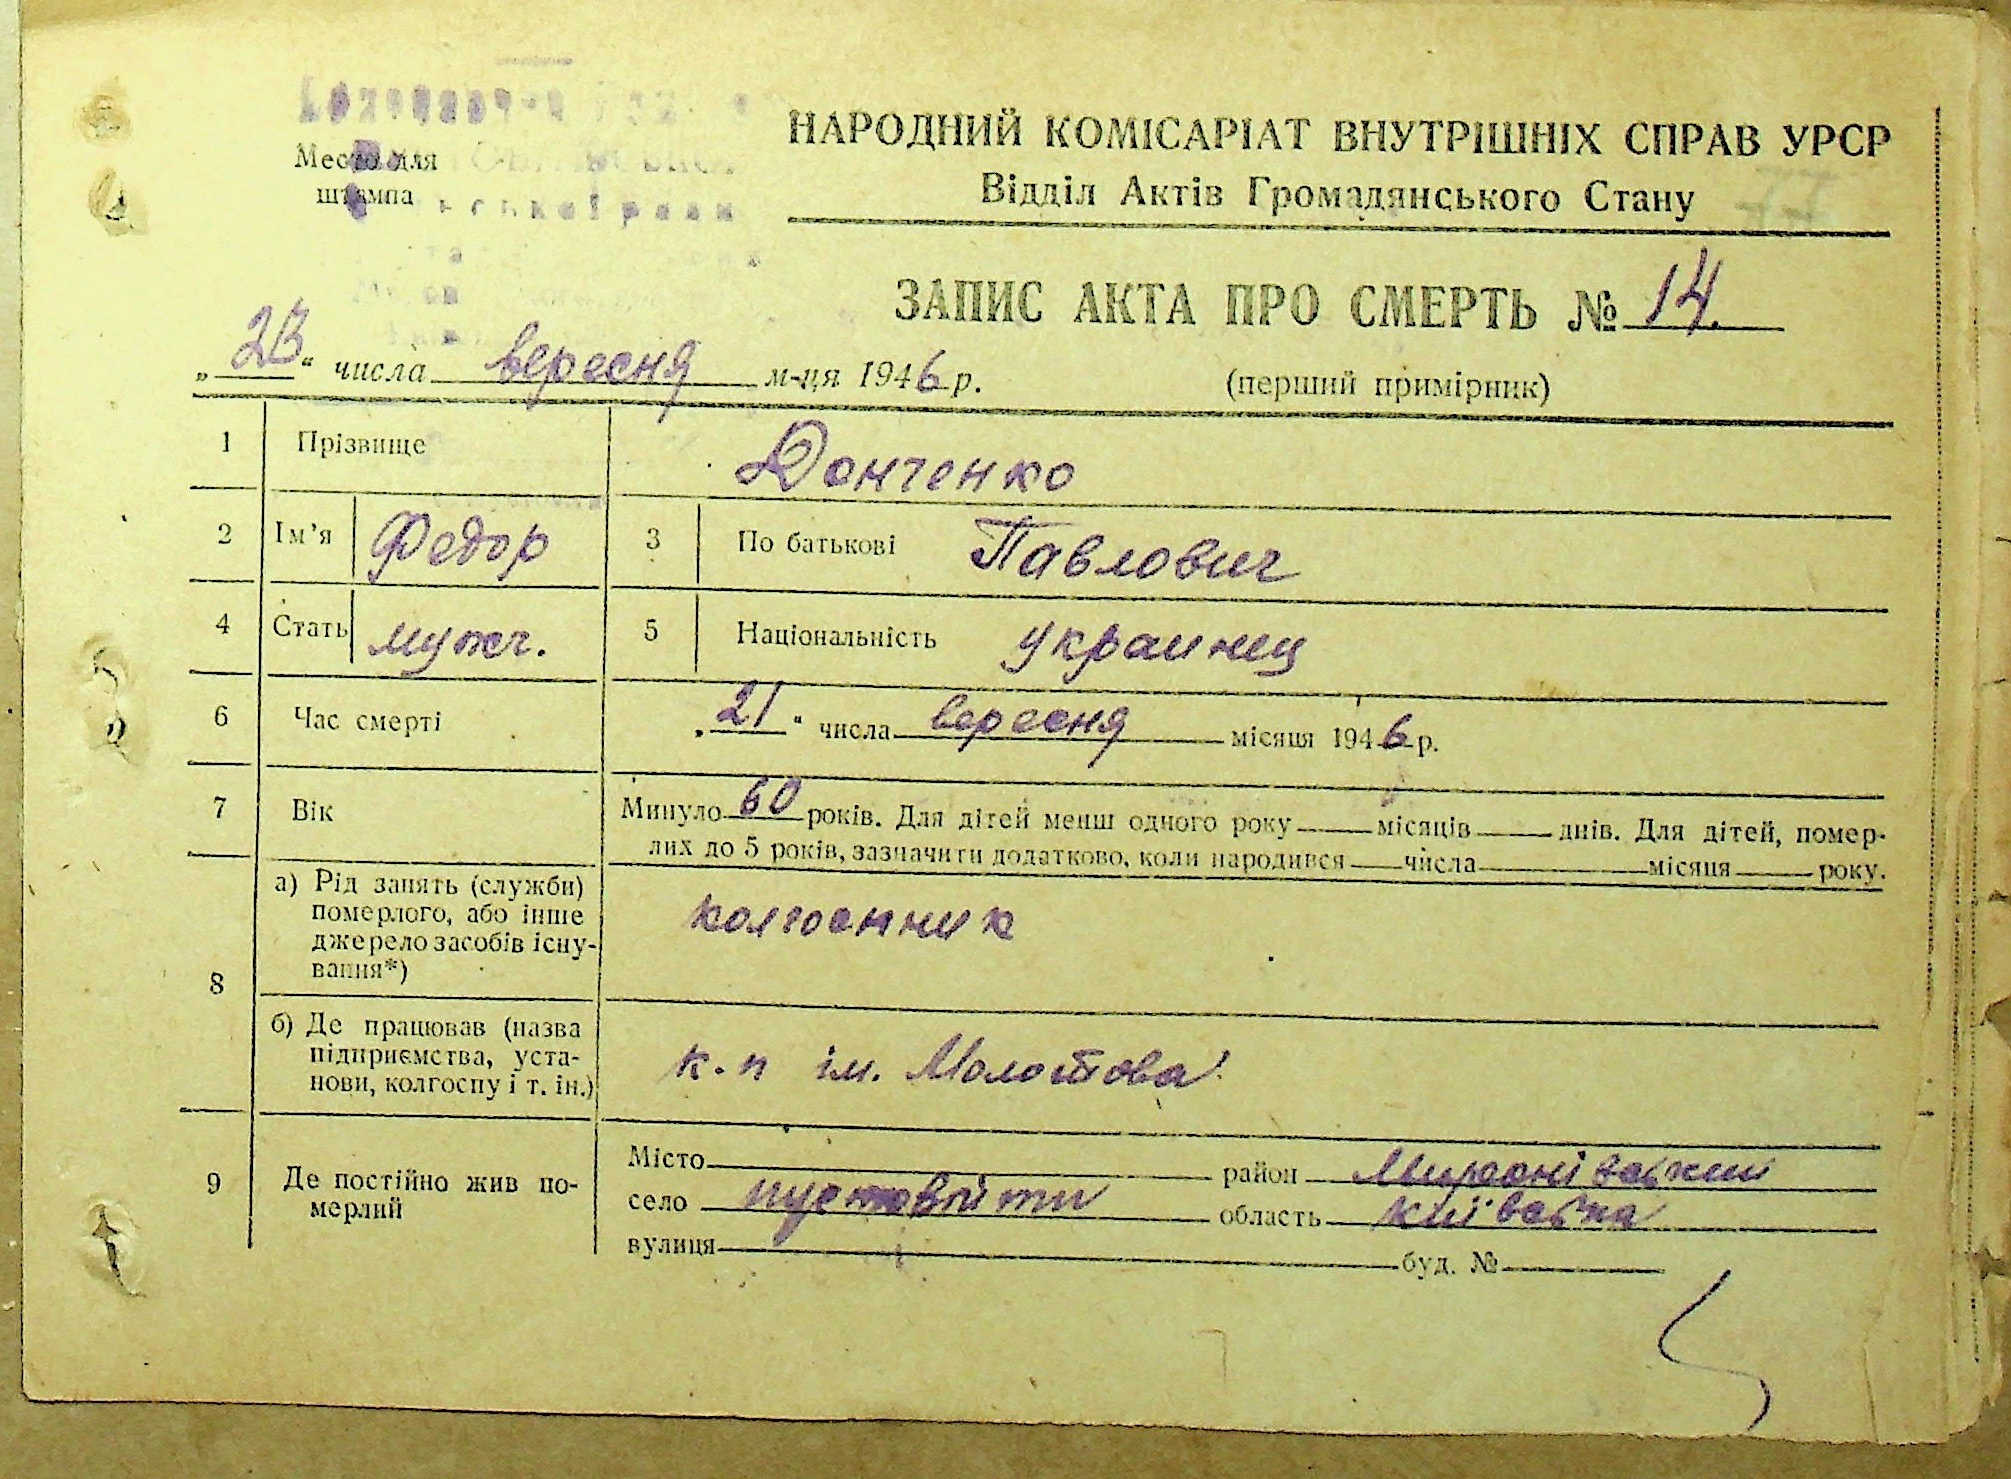 Место для
штампа
НАРОДНИЙ КОМІСАРІАТ ВНУТРІШНІХ СПРАВ УРСР
Відділ Актів Громадянського Стану
ЗАПИС АКТА ПРО СМЕРТЬ № 14.
„23“ числа вересня м-ця 1946 р.
(перший примірник)
1 Прізвище Донченко
2 Ім'я Федор 3 По батькові Павлович
4 Стать мужч. 5 Національність украинец
6 Час смерті „21“ числа вересня місяця 1946 р.
7 Вік Минуло 60 років. Для дітей менш одного року місяців днів. Для дітей, помер-
лих до 5 років, зазначити додатково, коли народився числа місяця року.
8 а) Рід занять (служби)
померлого, або інше
джерело засобів існу-
вання*)
колгоспник
б) Де працював (назва
підприємства, уста-
нови, колгоспу і т. ін.)
к.п ім. Молотова
9 Де постійно жив по-
мерлий
Місто район Миронівский
село пустовіти область київська
вулиця буд. №